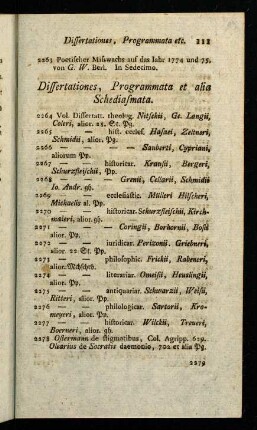 Dissertationes, Programmata etc. 211
2263 Poetischer Misswachs auf das Iahr 1774 und 75.
von G. W. Berl. In Sedecimo.
Dissertationes, Programmata et alia
Schediasmata.
2264 Vol. Dissertatt. theolog. Nitschii, Ge. Langii,
Celeri, alior. 22. St. Pg.
2265 — — hist. eccles. Hafnei, Zeltneri,
Schmidii, alior. Pg.
2266 — — — Sanberti, Cypriani,
aliorum Pp.
2267 — — historicar. Krausii, Bergeri,
Schurzfleischii, Pp.
2268 — — — Grenii, Cellarii, Schmidii
Io. Andr. gh.
2269 — — ecclesiastic. Mülleri Hilscheri,
Michaelis al. Pp.
2270 — — historicar. Schurzfleischii, Kirch-
maieri, alior. gh.
2271 — — — Coringii, Borhornii, Bosii
alior. Pp.
2272 — — iuridicar. Perizonii, Griebneri,
alior. 22. St. Pp.
2273 — — philosophic. Frickii, Rabeneri,
alior.
2274 — — literariar. Omeisii, Heuslingii,
alior. Pp.
2275 — — antiquariar. Schwarzii, Welsii,
Ritteri, alior. Pp.
2276 — — philologicar. Sartorii, Kro-
meyeri, alior. Pp.
2277 — — historicar. Wilckii, Treueri,
Boerneri, alior. gb.
2278 Ostermann de stigmatibus, Col. Agripp. 629.
Olearius de Socratis daemonio, 702 et alia Pg.
2279